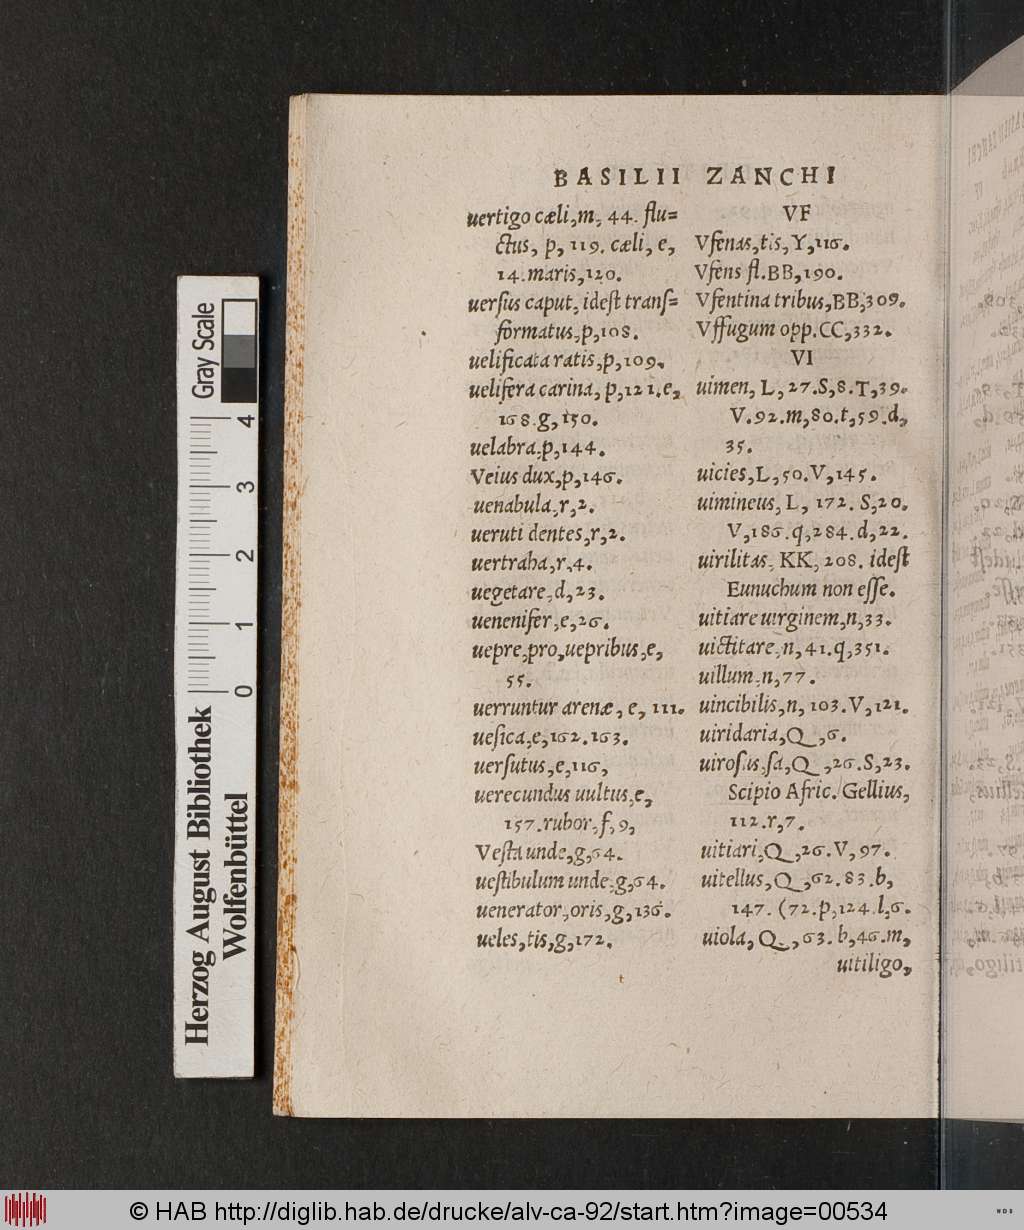 BASILII ZANCHI
uertigo cæli, m, 44. flu=
ctus, p, 119. cæli, e,
14. maris, 120.
uersus caput, idest trans=
formatus, p, 108.
uelificata ratis, p, 109.
uelifera carina, p, 121. e,
168. g, 150.
uelabra. p, 144.
Veius dux, p, 146.
uenabula, r, 2.
ueruti dentes, r, 2.
uertraha, r, 4.
uegetare, d, 23.
uenenifer, e, 26.
uepre, pro, uepribus, e,
55.
uerruntur arenæ, e, 111.
uesica, e, 162. 163.
uersutus, e, 116,
uerecundus uultus, e,
157. rubor, f, 9,
Vesta unde, g, 64.
uestibulum unde, g, 64.
uenerator, oris, g, 136.
ueles, tis, g, 172.
VF
Vfenas, tis, Y, 116.
Vfens fl. BB, 190.
Vfentina tribus, BB, 309.
Vffugum opp. CC, 332.
VI
uimen, L, 27. S, 8. T, 39.
V. 92. m, 80. t, 59. d,
35.
uicies, L, 50. V, 145.
uimineus, L, 172. S, 20.
V, 186. q, 284. d, 22.
uirilitas, KK, 208. idest
Eunuchum non esse.
uitiare uirginem, n, 33.
uictitare, n, 41. q, 351.
uillum, n, 77.
uincibilis, n, 103. V, 121.
uiridaria, Q, 6.
uirosus, sa, Q, 26. S, 23.
Scipio Afric. Gellius,
112. r, 7.
uitiari, Q, 26. V, 97.
uitellus, Q, 62. 83. b,
147. (72. p, 124. l, 6.
uiola, Q, 63. b, 46. m,
uitiligo,
Gray Scale
4 3 2 1 0
Herzog August Bibliothek
Wolfenbüttel
© HAB http://diglib.hab.de/drucke/alv-ca-92/start.htm?image=00534